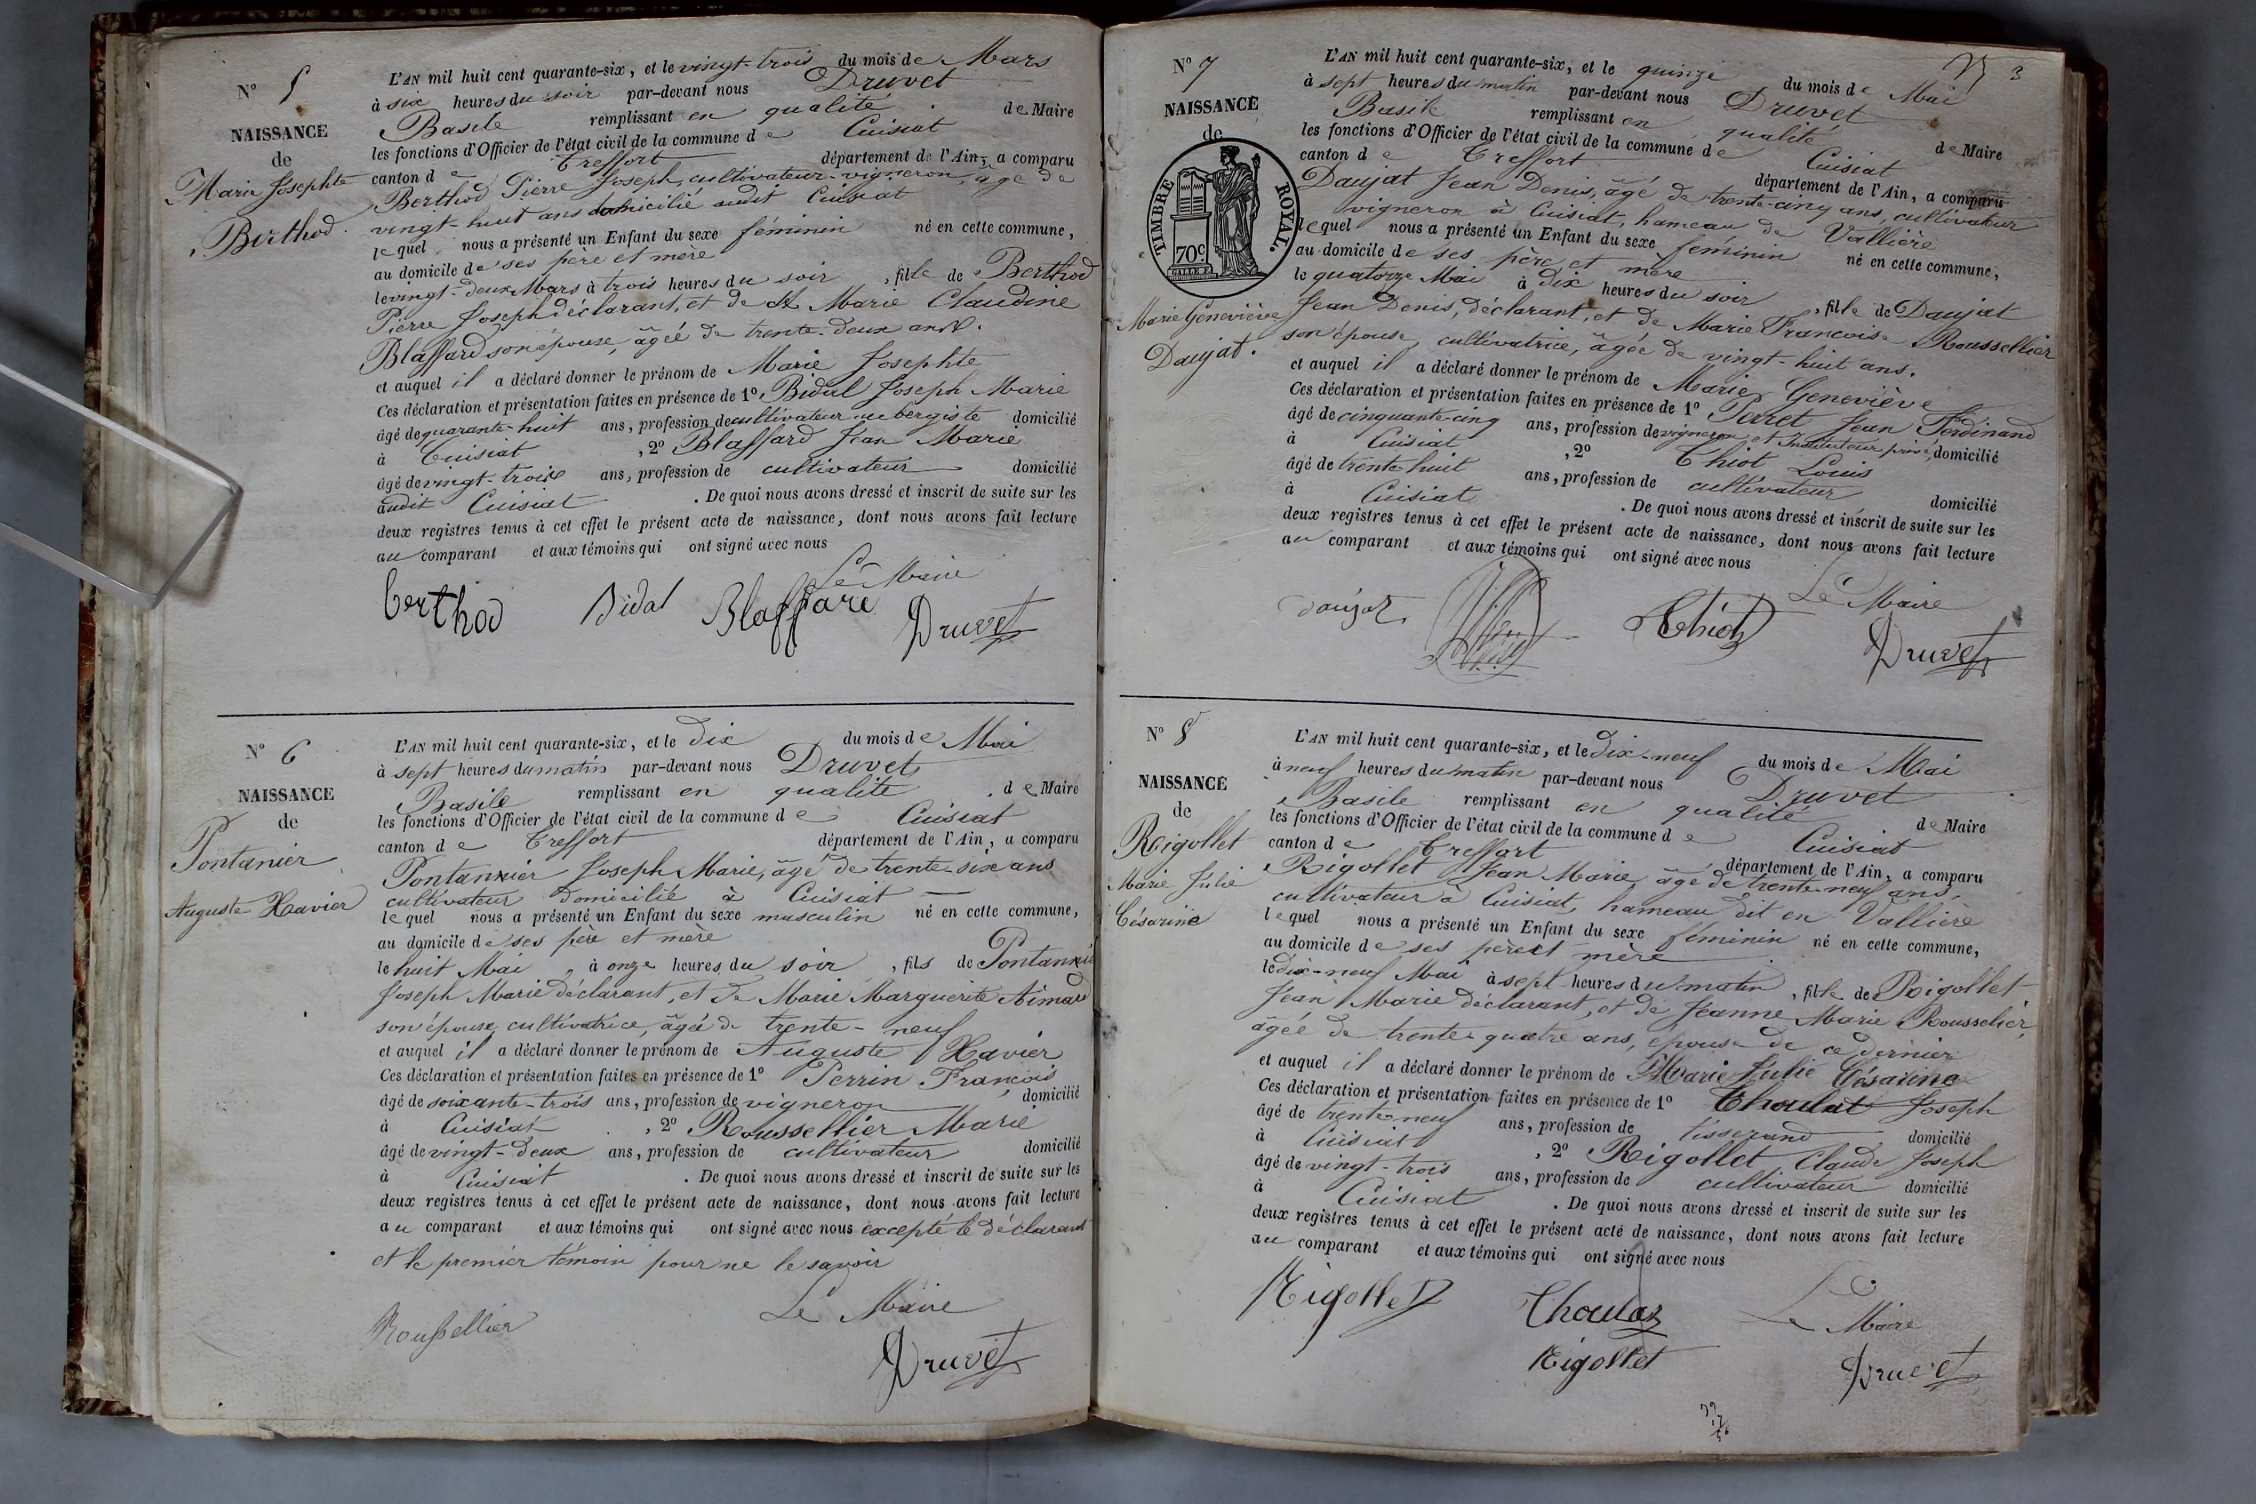 N° 5
NAISSANCE
de
Marie Josephte
Berthod.
L'AN mil huit cent quarante-six, et le vingt-trois du mois de Mars
à six heures du soir par-devant nous Druvet
Basile remplissant en qualité de Maire
les fonctions d'Officier de l'état civil de la commune de Cuisiat
canton de Treffort département de l'Ain, a comparu
Berthod Pierre Joseph, cultivateur-vigneron, âgé de
vingt-huit ans domicilié audit Cuisiat
lequel nous a présenté un Enfant du sexe féminin né en cette commune,
au domicile de ses père et mère
le vingt-deux Mars à trois heures du soir, fille de Berthod
Pierre Joseph déclarant, et de Marie Claudine
Blaffard son épouse, âgée de trente-deux ans.
et auquel il a déclaré donner le prénom de Marie Josephte
Ces déclaration et présentation faites en présence de 1° Bidal Joseph Marie
âgé de quarante-huit ans, profession de cultivateur aubergiste domicilié
à Cuisiat, 2° Blaffard Jean Marie
âgé de vingt-trois ans, profession de cultivateur domicilié
audit Cuisiat. De quoi nous avons dressé et inscrit de suite sur les
deux registres tenus à cet effet le présent acte de naissance, dont nous avons fait lecture
au comparant et aux témoins qui ont signé avec nous
Le Maire
berthod Bidal Blaffard Druvet
N° 6
NAISSANCE
de
Pontanier
Auguste Xavier
L'AN mil huit cent quarante-six, et le dix du mois de Mai
à sept heures du matin par-devant nous Druvet
Basile remplissant en qualité de Maire
les fonctions d'Officier de l'état civil de la commune de Cuisiat
canton de Treffort département de l'Ain, a comparu
Pontannier Joseph Marie, âgé de trente-six ans
cultivateur domicilié à Cuisiat
lequel nous a présenté un Enfant du sexe masculin né en cette commune,
au domicile de ses père et mère
le huit Mai, à onze heures du soir, fils de Pontannié
Joseph Marie déclarant, et de Marie Marguerite Aimard
son épouse cultivatrice, âgée de trente-neuf
et auquel il a déclaré donner le prénom de Auguste Xavier
Ces déclaration et présentation faites en présence de 1° Perrin François
âgé de soixante-trois ans, profession de vigneron domicilié
à Cuisiat, 2° Roussellier Marie
âgé de vingt-deux ans, profession de cultivateur domicilié
à Cuisiat. De quoi nous avons dressé et inscrit de suite sur les
deux registres tenus à cet effet le présent acte de naissance, dont nous avons fait lecture
au comparant et aux témoins qui ont signé avec nous excepté le déclarant
et le premier témoin pour ne le savoir
Le Maire
Roussellier
Druvet
3
N° 7
NAISSANCE
de
TIMBRE ROYAL.
70c
Marie Geneviève
Daujat.
L'AN mil huit cent quarante-six, et le quinze du mois de Mai
à sept heures du matin par-devant nous Druvet
Basile remplissant en qualité de Maire
les fonctions d'Officier de l'état civil de la commune de Cuisiat
canton de Treffort département de l'Ain, a comparu
Daujat Jean Denis, âgé de trente-cinq ans, cultivateur
vigneron à Cuisiat, hameau de Vallière
lequel nous a présenté un Enfant du sexe féminin né en cette commune,
au domicile de ses père et mère
le quatorze Mai à dix heures du soir, fille de Daujat
Jean Denis, déclarant, et de Marie Françoise Roussellier
son épouse, cultivatrice, âgée de vingt-huit ans.
et auquel il a déclaré donner le prénom de Marie Geneviève
Ces déclaration et présentation faites en présence de 1° Perret Jean Ferdinand
âgé de cinquante-cinq ans, profession de vigneron et Instituteur privé, domicilié
à Cuisiat, 2° Thiot Louis
âgé de trente-huit ans, profession de cultivateur domicilié
à Cuisiat. De quoi nous avons dressé et inscrit de suite sur les
deux registres tenus à cet effet le présent acte de naissance, dont nous avons fait lecture
au comparant et aux témoins qui ont signé avec nous
Le Maire
daujat Thiot Druvet
N° 8
NAISSANCE
de
Rigollet
Marie Julie
Césarine
L'AN mil huit cent quarante-six, et le dix-neuf du mois de Mai
à neuf heures du matin par-devant nous Druvet
Basile remplissant en qualité de Maire
les fonctions d'Officier de l'état civil de la commune de Cuisiat
canton de Treffort département de l'Ain, a comparu
Rigollet Jean Marie âgé de trente-neuf ans,
cultivateur à Cuisiat, hameau dit en Vallière
lequel nous a présenté un Enfant du sexe féminin né en cette commune,
au domicile de ses père et mère
le dix-neuf Mai à sept heures du matin, fille de Rigollet
Jean Marie déclarant, et de Jeanne Marie Rousselier,
âgée de trente-quatre ans, épouse de ce dernier
et auquel il a déclaré donner le prénom de Marie Julie Césarine
Ces déclaration et présentation faites en présence de 1° Choulat Joseph
âgé de trente-neuf ans, profession de tisserand domicilié
à Cuisiat, 2° Rigollet Claude Joseph
âgé de vingt-trois ans, profession de cultivateur domicilié
à Cuisiat. De quoi nous avons dressé et inscrit de suite sur les
deux registres tenus à cet effet le présent acte de naissance, dont nous avons fait lecture
au comparant et aux témoins qui ont signé avec nous
Rigollet Choulat Le Maire
Rigollet Druvet